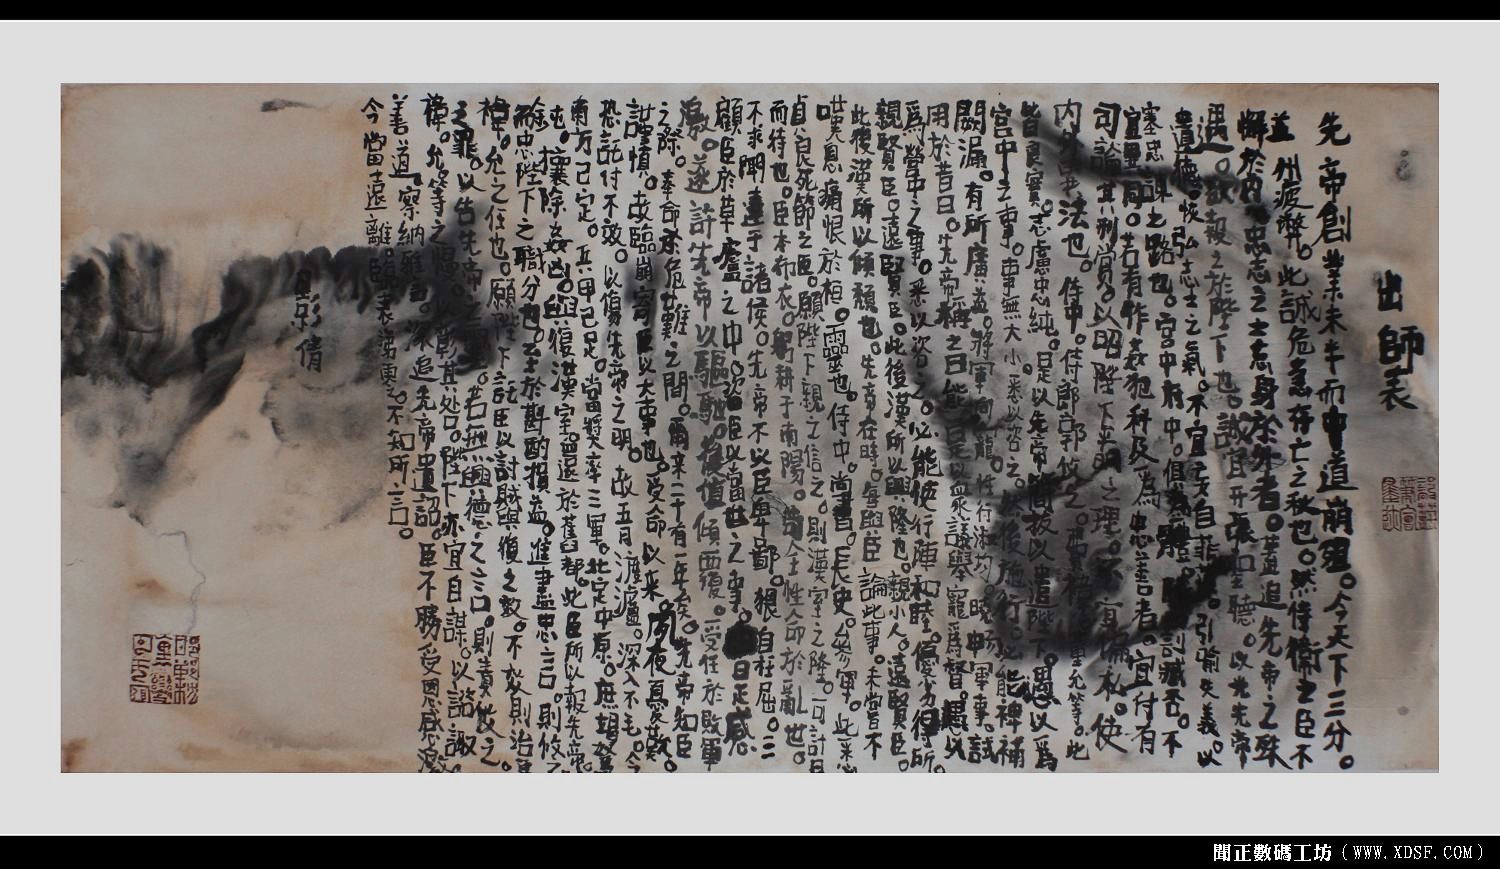 出師表
先帝創業未半而中道崩殂。今天下三分。
益州疲弊。此誠危急存亡之秋也。然侍衛之臣不
懈於內。忠志之士忘身於外者。蓋追先帝之殊
遇。欲報之於陛下也。誠宜開張聖聽。以光先帝
遺德。恢弘志士之氣。不宜妄自菲。引喻失義。以
塞忠諫之路也。宮中府中。俱為體。陟罰臧否。不
宜異同。若有作姦犯科及為忠善者。宜付有
司論其刑賞。以昭陛下平明之理。不宜偏私。使
內外異法也。侍中。侍郎郭攸之。費禕。董允等。此
皆良實。志慮忠純。是以先帝簡拔以遺陛下。愚以為
宮中之事。事無大小。悉以咨之。然後施行。必能裨補
闕漏。有所廣益。將軍向寵。性行淑均。曉暢軍事。試
用於昔日。先帝稱之曰能。是以眾議舉寵為督。愚以
為營中之事。悉以咨之。必能使行陣和睦。優劣得所。
親賢臣。遠賢臣。此後漢所以興隆也。親小人。遠賢臣。
此後漢所以傾頹也。先帝在時。每與臣論此事。未嘗不
嘆息痛恨於桓。靈也。侍中。尚書。長史。參軍。此悉
貞良死節之臣。願陛下親之信之。則漢室之隆。可計日
而待也。臣本布衣。躬耕于南陽。苟全性命於亂世。
不求聞達于諸侯。先帝不以臣卑鄙。猥自枉屈。三
顧臣於草廬之中。咨臣以當世之事。由是感
激。遂許先帝以驅馳。後值傾覆。受任於敗軍
之際。奉命於危難之間。爾來二十有一年矣。先帝知臣
謹慎。故臨崩寄臣以大事也。受命以來。夙夜憂歎。
恐託付不效。以傷先帝之明。故五月渡瀘。深入不毛。今
南方已定。兵甲已足。當獎率三軍。北定中原。庶竭駑
鈍。攘除姦凶。興復漢室。還於舊都。此臣所以報先帝。
而忠陛下之職分也。至於斟酌損益。進盡忠言。則攸之
禕。允之任也。願陛下託臣以討賊興復之效。不效則治臣
之罪。以告先帝之靈。若無興德之言。則責攸之
禕。允。等之慢。以彰其咎。陛下亦宜自謀。以諮諏
善道。察納雅言。深追先帝遺詔。臣不勝受恩感激
今當遠離。臨表涕零。不知所言。
彭倩
聞正數碼工坊（WWW.XDSF.COM）